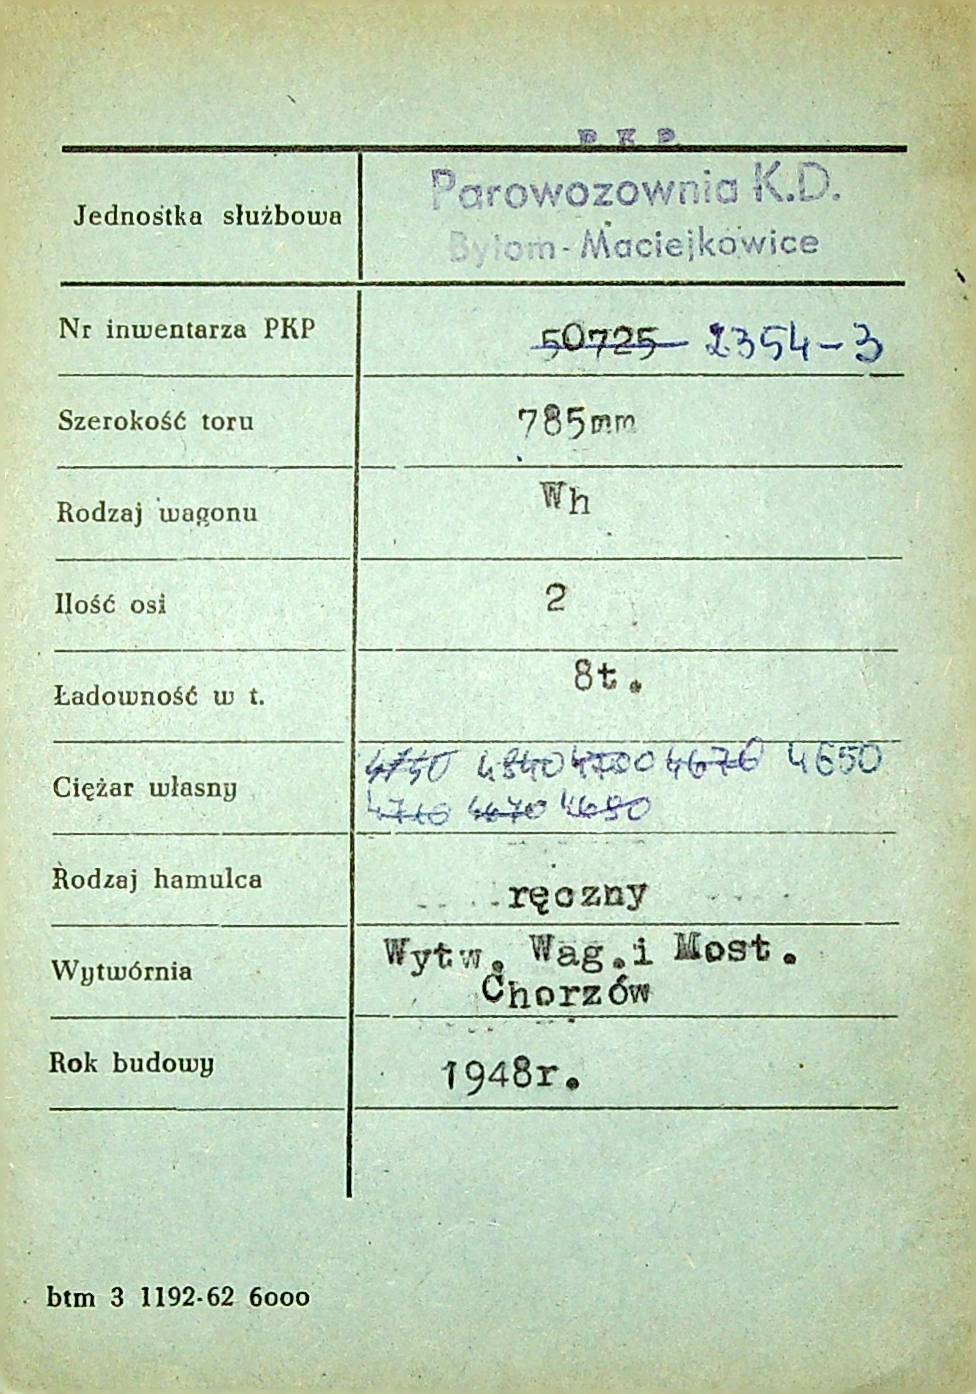 P K P
Jednostka służbowa
Parowozownia K.D.
Bytom-Maciejkowice
Nr inwentarza PKP 50725 2354-3
Szerokość toru 785mm
Rodzaj wagonu Wh
Ilość osi 2
Ładowność w t. 8t.
4750 4840 4700 4670 4650
Ciężar własny
4710 4670 4680
Rodzaj hamulca ręczny
Wytw. Wag.i Most.
Wytwórnia
Chorzów
Rok budowy 1948r.
btm 3 1192-62 6000